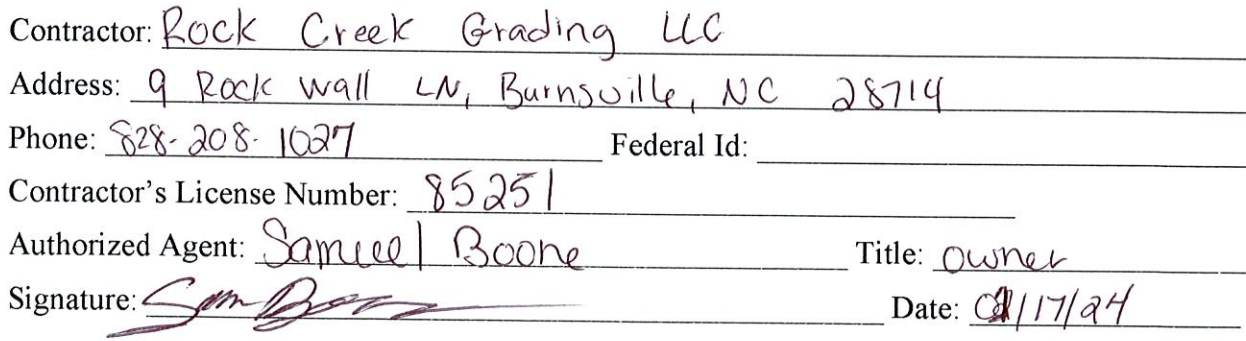 Contractor: Rock Creek Grading LLC
Address: 9 Rock Wall LN, Burnsville, NC 28714
Phone: 828-208-1027 Federal Id:
Contractor's License Number: 85251
Authorized Agent: Samuel Boone Title: owner
Signature: Sam Boone Date: /17/24